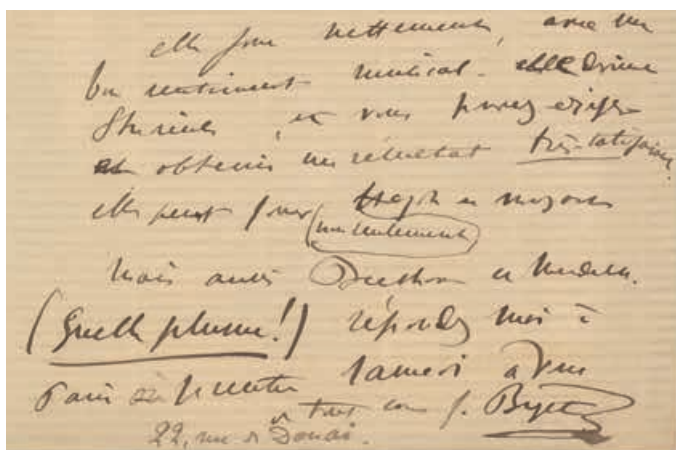 elle joue nettement, avec un
bon sentiment musical. elle
et vous pouvez exiger
et obtenir un résultat très-satisfaisant.
elle peut jouer Haydn et Mozart
non seulement
mais aussi Beethoven et
(Quelle plume!) répondez moi à
samedi
tout
22, rue de Douai.